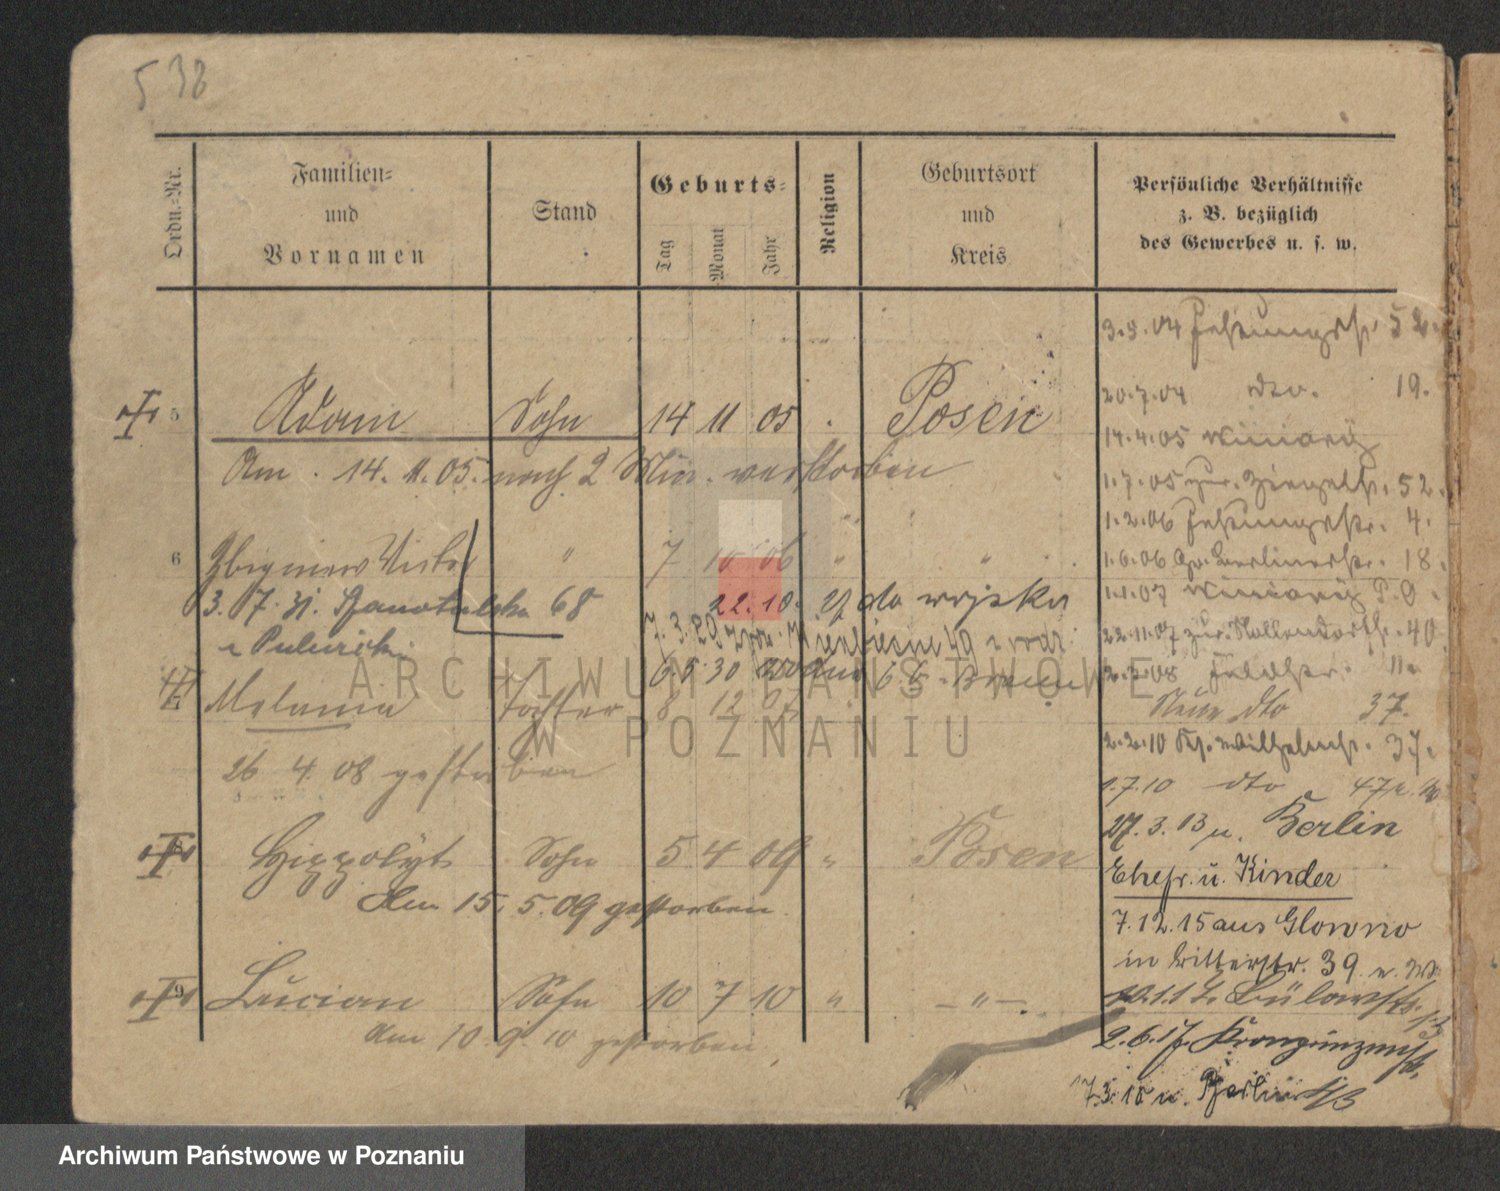 538
Ordn.-Nr.
Familien-
und
Vornamen
Stand
Geburts-
Tag
Monat
Jahr
Religion
Geburtsort
und
Kreis
Persönliche Verhältnisse
z. B. bezüglich
des Gewerbes u. s. w.
5 Adam Sohn 14 11 05 Posen
Am 14. 11. 05. nach 2 Min. verstorben
6 Zbigniew " 7 10 06 " "
3. 7. 31. 68 22. 10. 27 do wojska
Melania Tochter 8 12 07
26 4. 08 gestorben
Hippolÿt Sohn 5 4 09 " Posen
Am 15. 5. 09 gestorben
9 Lucian Sohn 10 7 10 " — " —
Am 10. 9. 10 gestorben
3.9.04 Festungsstr. 52.
20.7.04 dto. 19.
14.4.05 Winiary
1.7.05 zur. Ziegelstr. 52.
1.2.06 Festungsstr. 4.
1.6.06 Gr. Berlinerstr. 18.
1.1.07 Winiary 9.
22.11.07 zur. Nollendorfstr. 40
2.2.08 Feldstr. 11.
Neue dto 37.
2.2.10 Ks. Wilhelmstr. 37.
1.7.10 dto 47
27.3.13 u. Berlin
Ehefr. u. Kinder
7.12.15 aus Glowno
in Ritterstr. 39
Bülowstr.
2.6.17. Kronprinzenstr.
17.3.18 u. Berlin
ARCHIWUM PAŃSTWOWE
W POZNANIU
Archiwum Państwowe w Poznaniu